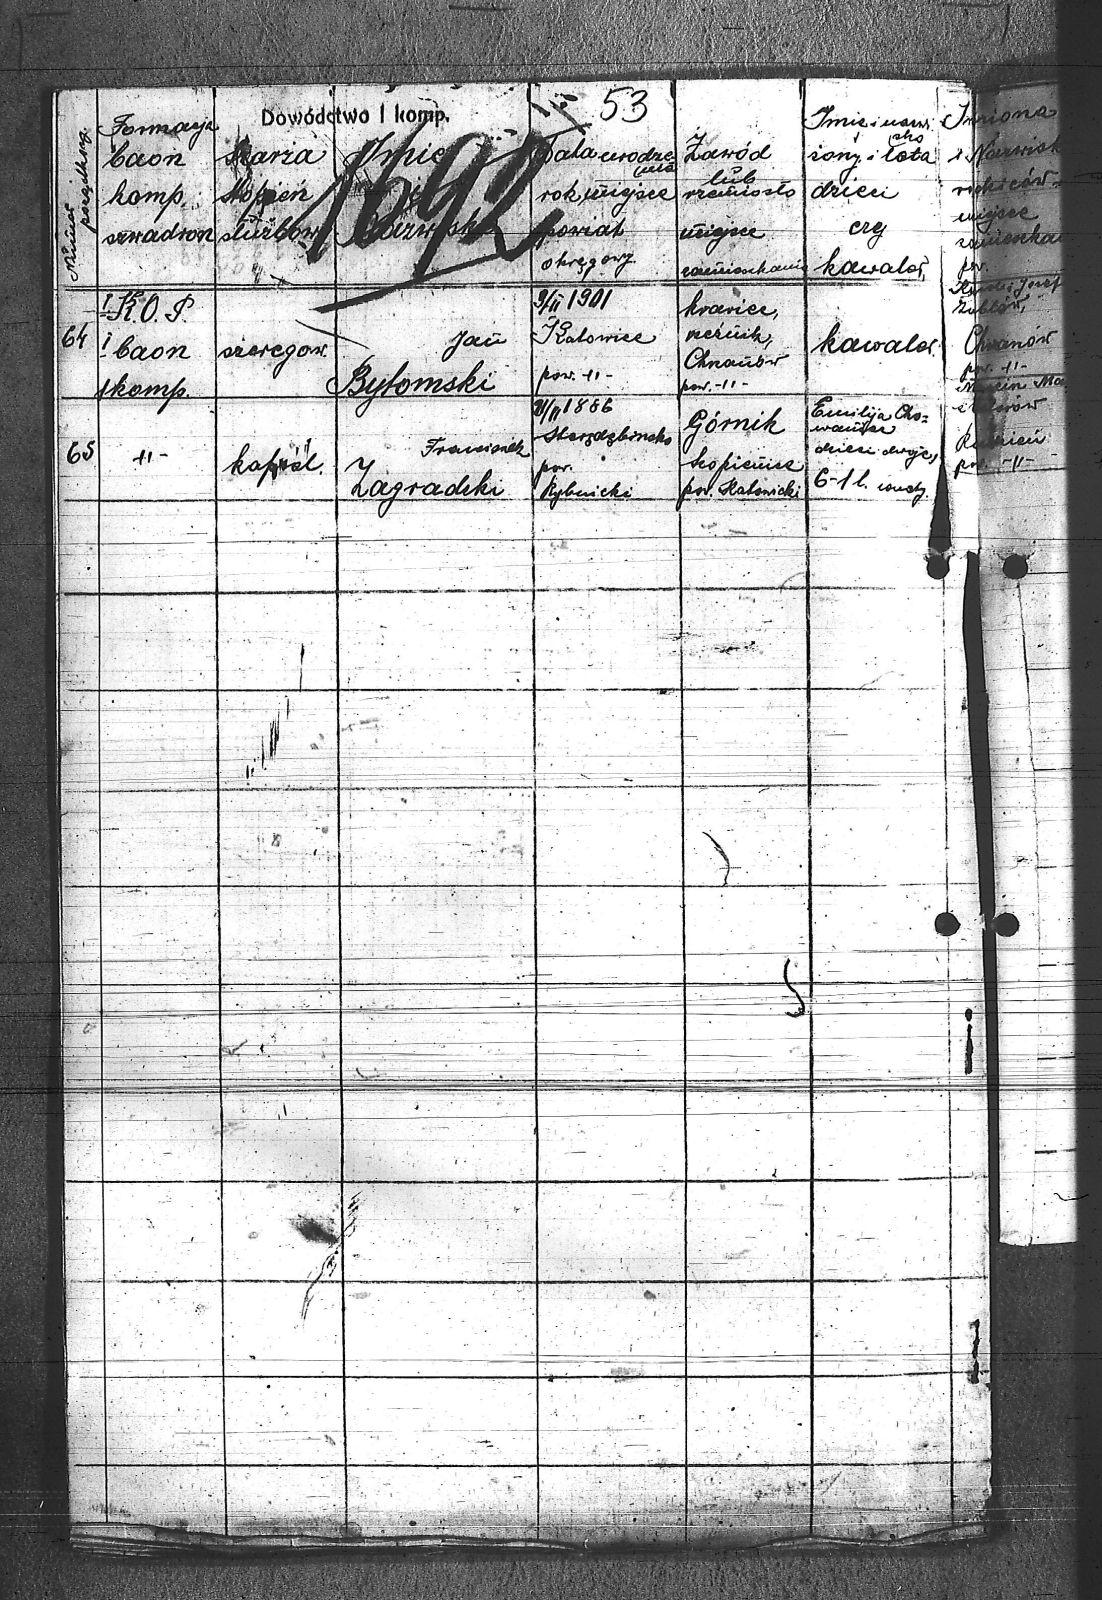 53
Dowództwo I komp.
1692
Numer porządkowy
Formacja
baon
komp.
szwadron
Szarża
stopień
służbow.
Imię
i
Nazwisko
Data urodze-
nia
rok miejsce
powiat
okręgowy
Zawód
lub
rzemiosło
miejsce
zamieszkania
Imię i nazwi-
sko
żony i lata
dzieci
czy
kawaler,
Imiona
i Nazwisk
rodziców
miejsce
zamieszka
pow.
64
I K.O.P.
I baon
1 komp.
szeregow.
Jan
Bytomski
9/II 1901
Katowice
pow. -11-
krawiec,
rzeźnik,
pow. -11-
kawaler.
Józef
pow. -11-
65
-11-
kapral.
Franciszek
Zagradzki
1886
pow.
Rybnicki
Górnik
Szopienice
pow. Katowicki
Emilija Cho-
dzieci dwoje,
6-1 l.
pow. -11-